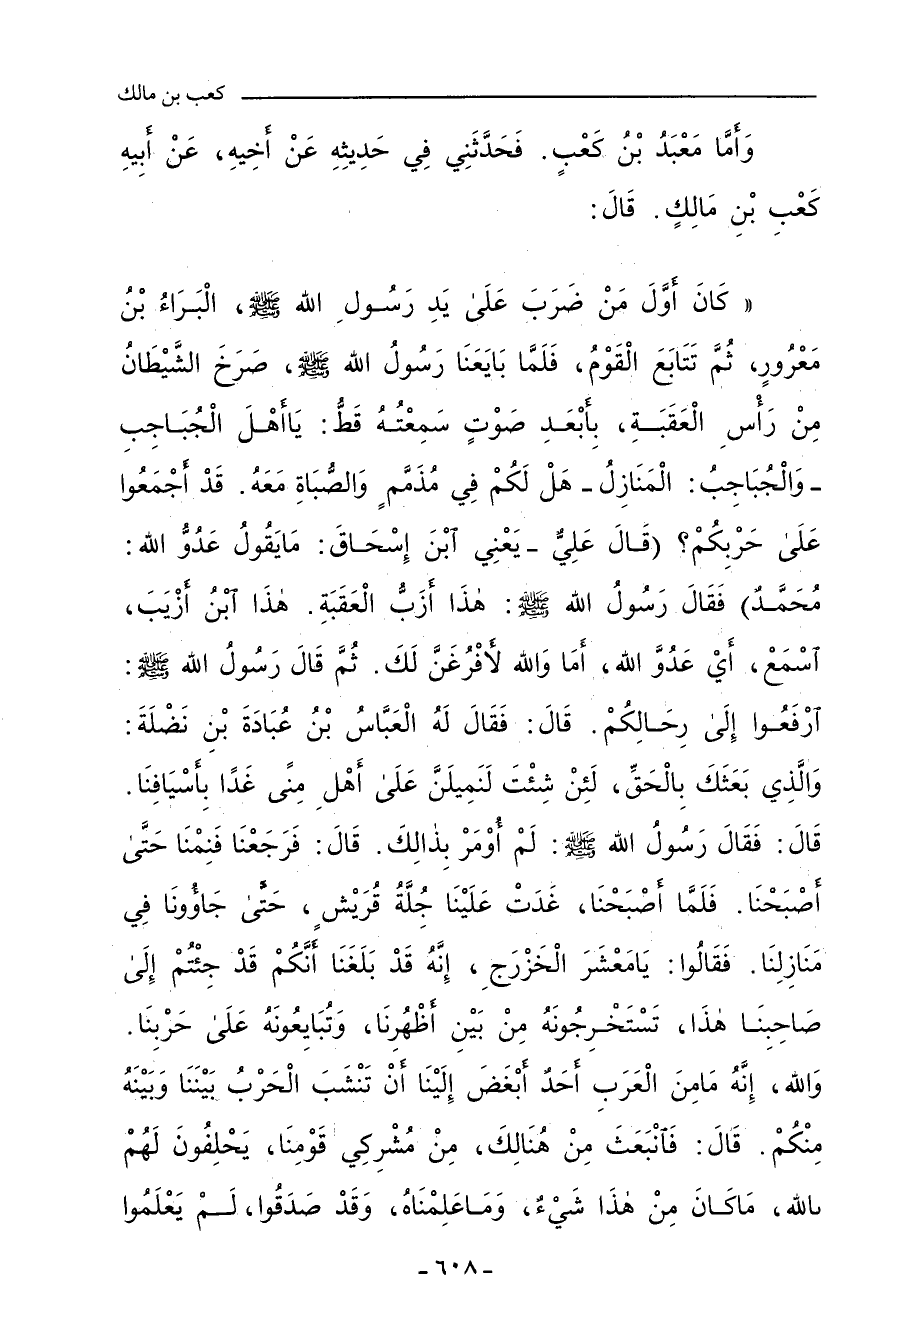 كعب بن مالك
وَأَمَّا مَعْبَدُ بْنُ كَعْبٍ. فَحَدَّثَنِي فِي حَدِيثِهِ عَنْ أَخِيهِ، عَنْ أَبِيهِ
كَعْبِ بْنِ مَالِكٍ. قَالَ:
« كَانَ أَوَّلَ مَنْ ضَرَبَ عَلَىٰ يَدِ رَسُولِ الله ﷺ، الْبَرَاءُ بْنُ
مَعْرُورٍ، ثُمَّ تَتَابَعَ الْقَوْمُ، فَلَمَّا بَايَعَنَا رَسُولُ الله ﷺ، صَرَخَ الشَّيْطَانُ
مِنْ رَأْسِ الْعَقَبَةِ، بِأَبْعَدِ صَوْتٍ سَمِعْتُهُ قَطُّ: يَاأَهْلَ الْجُبَاجِبِ
ـ وَالْجُبَاجِبُ: الْمَنَازِلُ ـ هَلْ لَكُمْ فِي مُذَمَّمٍ وَالصُّبَاةِ مَعَهُ. قَدْ أَجْمَعُوا
عَلَىٰ حَرْبِكُمْ؟ (قَالَ عَلِيٌّ ـ يَعْنِي ٱبْنَ إِسْحَاقَ: مَايَقُولُ عَدُوُّ الله:
مُحَمَّدٌ) فَقَالَ رَسُولُ الله ﷺ: هٰذَا أَزَبُّ الْعَقَبَةِ. هٰذَا ٱبْنُ أَزْيَبَ،
ٱسْمَعْ، أَيْ عَدُوَّ الله، أَمَا وَالله لَأَفْرُغَنَّ لَكَ. ثُمَّ قَالَ رَسُولُ الله ﷺ:
ٱرْفَعُوا إِلَىٰ رِحَالِكُمْ. قَالَ: فَقَالَ لَهُ الْعَبَّاسُ بْنُ عُبَادَةَ بْنِ نَضْلَةَ:
وَالَّذِي بَعَثَكَ بِالْحَقِّ، لَئِنْ شِئْتَ لَنَمِيلَنَّ عَلَىٰ أَهْلِ مِنًى غَدًا بِأَسْيَافِنَا.
قَالَ: فَقَالَ رَسُولُ الله ﷺ: لَمْ أُومَرْ بِذٰالِكَ. قَالَ: فَرَجَعْنَا فَنِمْنَا حَتَّىٰ
أَصْبَحْنَا. فَلَمَّا أَصْبَحْنَا، غَدَتْ عَلَيْنَا جُلَّةُ قُرَيْشٍ، حَتَّىٰ جَاؤُونَا فِي
مَنَازِلِنَا. فَقَالُوا: يَامَعْشَرَ الْخَزْرَجِ، إِنَّهُ قَدْ بَلَغَنَا أَنَّكُمْ قَدْ جِئْتُمْ إِلَىٰ
صَاحِبِنَا هٰذَا، تَسْتَخْرِجُونَهُ مِنْ بَيْنِ أَظْهُرِنَا، وَتُبَايِعُونَهُ عَلَىٰ حَرْبِنَا.
وَالله، إِنَّهُ مَامِنَ الْعَرَبِ أَحَدٌ أَبْغَضَ إِلَيْنَا أَنْ تَنْشَبَ الْحَرْبُ بَيْنَنَا وَبَيْنَهُ
مِنْكُمْ. قَالَ: فَٱنْبَعَثَ مِنْ هُنَالِكَ، مِنْ مُشْرِكِي قَوْمِنَا، يَحْلِفُونَ لَهُمْ
بالله، مَاكَانَ مِنْ هٰذَا شَيْءٌ، وَمَاعَلِمْنَاهُ، وَقَدْ صَدَقُوا، لَمْ يَعْلَمُوا
ـ ٦٠٨ ـ